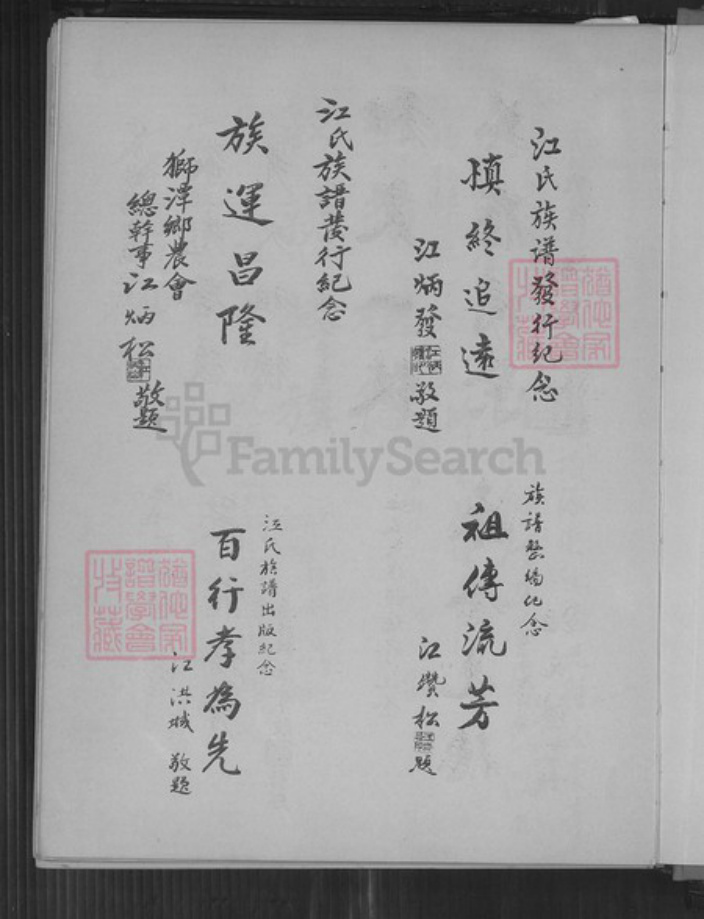 江氏族譜發行紀念
慎終追遠
江炳發
敬題
江氏族譜發行紀念
族運昌隆
獅潭鄉農會
總幹事江炳松
敬題
族譜整編紀念
祖傳流芳
江讚松
題
江氏族譜出版紀念
百行孝為先
江洪城 敬題
FamilySearch